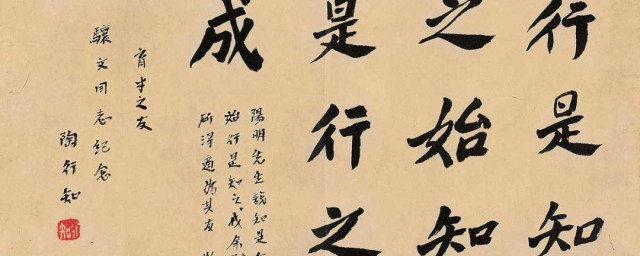 行是知
之始知
是行之
成
陽明先生說知是
始行是知之成余
所得適為其反
育才之友
驤文同志紀念
陶行知
行知